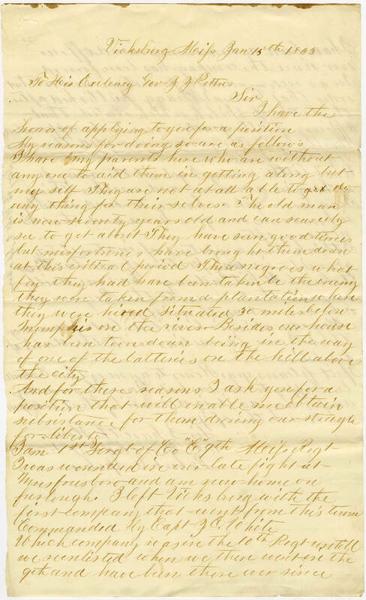 Vicksburg Miss Jan 15th 1863
To His Exelency Gov J J Pettus
Sir
I have the
honor of applying to you for a position
My reasons for doing so are as follows
I have my parents here who are without
any one to aid them in getting along but
my self They are not at all able to get
any thing for their selves The old man
is now seventy years old and can scarcely
see to get about They have seen good times
but misfortunes have brought them down
at this critical period Their negroes what
few they had have been taken by the enemy
they were taken from a plantation where
they were hired situated 30 miles below
Memphis on the river Besides our house
has been torn down being in the way
of one of the batteries on the hill above
the city
And for these reasons I ask you for a
position that will enable me obtain
subsistance for them during our strugle
for liberty
I am 1st Sergt of Co "E" 9th Miss Regt
I was wounded in our late fight at
Murfresboro and am now home on
furlough. I left Vicksburg with the
first company that went from this town
Commanded by Capt
Which company was in the 10th Regt untill
we reenlisted when we there went in the
9th and have been there ever since